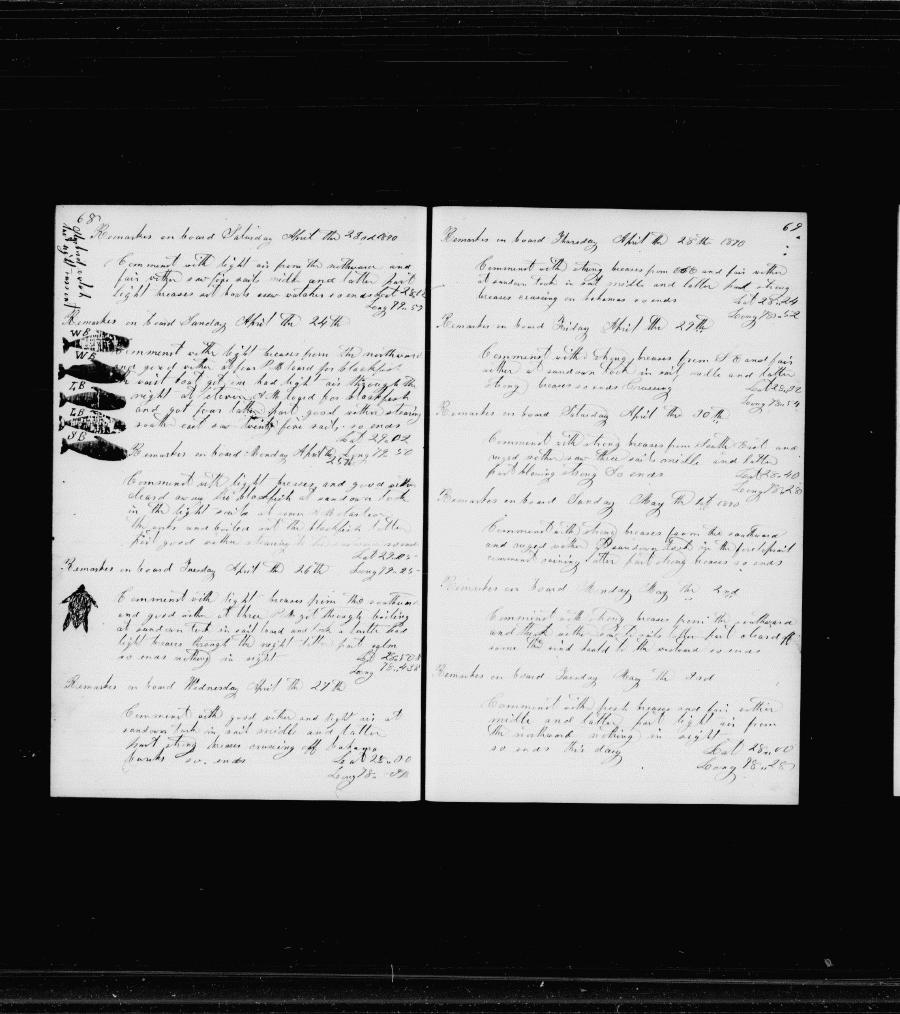 68
Remarks on board Saturday April the 23rd 1870
Comment with light air from the and
fair wither saw five sails midle and latter part
light breases
Long 79..55
Remarks on board Sunday April the 24th
WB
WB
LB
LB
SB
Comments withe light breases from the northward
and good wither at four P.M. loard for blackfish
boat got one had light air through the
night at eleven A.M. loged for blackfish
and got four latter part good wither stearing
south east saw twenty five sails, so ends
Lat 29.02
Remarks on board Monday April the 25th Long 79 50
Comment with light breases and good wither
cleard away the blackfish at sandown took
in the light sails at
the and boiled out the blackfish latter
part good wither stearing to the
Lat 29.05
Remarks on board Tuesday April the 26th Long 79..25
Comment with light breases from the southward
and good wither at three P.M. got through boiling
at sandown took in sail loard and took a turtle had
light breases through the night latter part calm
so ends nothing in sight Lat 28..50
Long 78..43
Remarks on board Wednesday April the 27th
Comment with good wither and light air at
sandown took in sail midle and latter
part strong breases cruising off bahama
banks so ends Lat 28..00
Long 78..
69
Remarks on board Thursday April the 28th 1870
Comment with strong breases from and fair wither
at sandown took in sail midle and latter had strong
breases cruising on bahamas so ends Lat 28..24
Long 78..52
Remarks on board Friday April the 29th
Comment with strong breases from S E and fair
wither at sandown took in sail midle and latter
strong breases so ends Cruising Lat 28..22
Long 78..54
Remarks on board Saturday April the 30th
Comment with strong breases from South East and
ruged wither saw three sails midle and latter
part blowing strong So ends Lat 28..40
Long 78..28
Remarks on board Sunday May the 1st 1870
Comment with strong breases from the southward
and ruged wither at sandown took in the fore topsail
comment raining latter part strong breases so ends
Remarks on board Monday May the 2nd
Comment with strong breases from the southward
and thick wither saw sails latter part cleard off
some the wind hauld to the westward so ends
Remarks on board Tuesday May the 3rd
Comment with fresh breases and fair wither
midle and latter part light air from
the northward nothing in sight
so ends this day Lat 28..00
Long 78..28